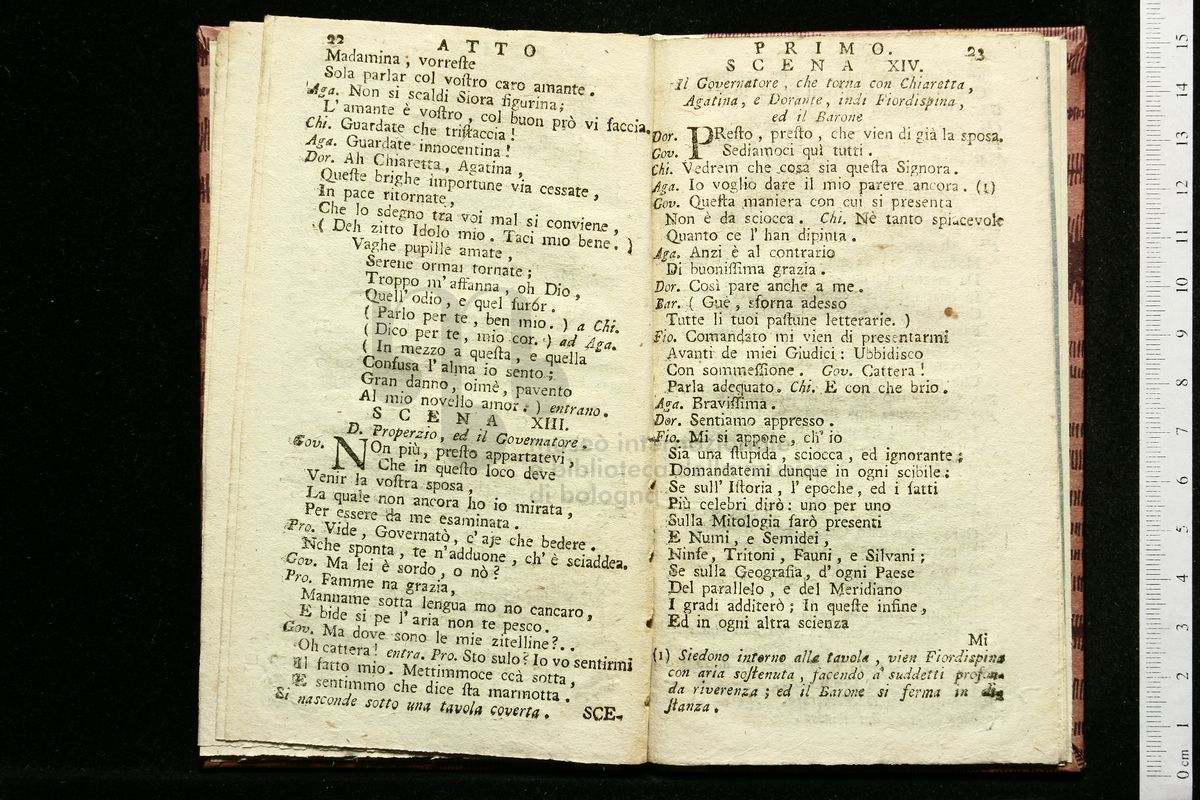 22 ATTO
Madamina, vorreſte
Sola parlar col voſtro caro amante.
Aga. Non si scaldi Siora figurina;
L' amante è voſtro, col buon prò vi faccia.
Chi. Guardate che triſtaccia!
Aga. Guardate innocentina!
Dor. Ah Chiaretta, Agatina,
Queſte brighe importune via cessate,
In pace ritornate,
Che lo sdegno tra voi mal si conviene,
( Deh zitto Idolo mio. Taci mio bene. )
Vaghe pupille amate,
Serene ormai tornate;
Troppo m' affanna, oh Dio,
Quell' odio, e quel furór.
( Parlo per te, ben mio. ) a Chi.
( Dico per te, mio cor. ) ad Aga.
( In mezzo a queſta, e quella
Confusa l' alma io sento;
Gran danno, oimè, pavento
Al mio novello amor. ) entrano.
SCENA XIII.
D. Properzio, ed il Governatore.
Gov. NOn più, preſto appartatevi,
Che in queſto loco deve
Venir la voſtra sposa,
La quale non ancora ho io mirata,
Per essere da me esaminata.
Pro. Vide, Governatò, c' aje che bedere.
Nche sponta, te n' adduone, ch' è sciaddea.
Gov. Ma lei è sordo, o nò?
Pro. Famme na grazia,
Manname sotta lengua mo no cancaro,
E bide si pe l' aria non te pesco.
Gov. Ma dove sono le mie zitelline?..
Oh cattera! entra. Pro. Sto sulo? Io vo sentirmi
Il fatto mio. Mettimmoce ccà sotta,
E sentimmo che dice ſta marmotta.
Si nasconde sotto una tavola coverta. SCE-
PRIMO. 23
SCENA XIV.
Il Governatore, che torna con Chiaretta,
Agatina, e Dorante, indi Fiordispina,
ed il Barone
Dor. PReſto, preſto, che vien di già la sposa.
Gov. Sediamoci quì tutti.
Chi. Vedrem che cosa sia queſta Signora.
Aga. Io voglio dare il mio parere ancora. (1)
Gov. Queſta maniera con cui si presenta
Non è da sciocca. Chi. Nè tanto spiacevole
Quanto ce l' han dipinta.
Aga. Anzi è al contrario
Di buoniſſima grazia.
Dor. Così pare anche a me.
Bar. ( Gue, sforna adesso
Tutte li tuoi paſtune letterarie. )
Fio. Comandato mi vien di presentarmi
Avanti de miei Giudici: Ubbidisco
Con sommeſſione. Gov. Cattera!
Parla adequato. Chi. E con che brio.
Aga. Braviſſima.
Dor. Sentiamo appresso.
Fio. Mi si appone, ch' io
Sia una ſtupida, sciocca, ed ignorante;
Domandatemi dunque in ogni scibile;
Se sull' Iſtoria, l' epoche, ed i fatti
Più celebri dirò: uno per uno
Sulla Mitologia farò presenti
E Numi, e Semidei,
Ninfe, Tritoni, Fauni, e Silvani;
Se sulla Geografia, d' ogni Paese
Del parallelo, e del Meridiano
I gradi additerò; In queſte infine,
Ed in ogni altra scienza
Mi
(1) Siedono intorno alla tavola, vien Fiordispina
con aria soſtenuta, facendo a' suddetti profon-
da riverenza; ed il Barone si ferma in di-
ſtanza.
museo internazionale
e biblioteca
di bologna
0 cm 1 2 3 4 5 6 7 8 9 10 11 12 13 14 15